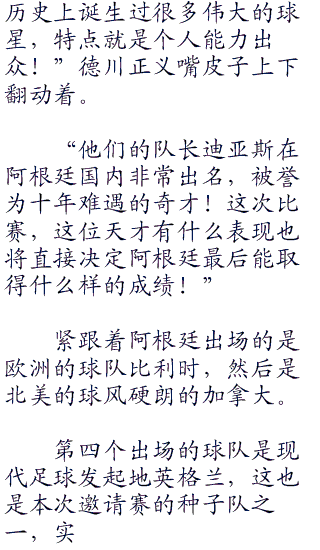 历史上诞生过很多伟大的球
星，特点就是个人能力出
众！”德川正义嘴皮子上下
翻动着。
“他们的队长迪亚斯在
阿根廷国内非常出名，被誉
为十年难遇的奇才！这次比
赛，这位天才有什么表现也
将直接决定阿根廷最后能取
得什么样的成绩！”
紧跟着阿根廷出场的是
欧洲的球队比利时，然后是
北美的球风硬朗的加拿大。
第四个出场的球队是现
代足球发起地英格兰，这也
是本次邀请赛的种子队之
一，实